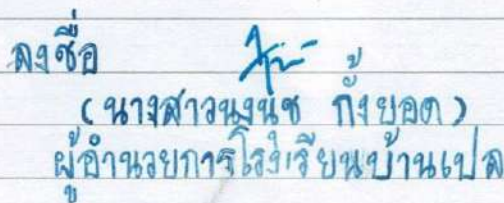 ลงชื่อ
(นางสาวนงนุช กิ้งยอด)
ผู้อำนวยการโรงเรียนบ้านเปล